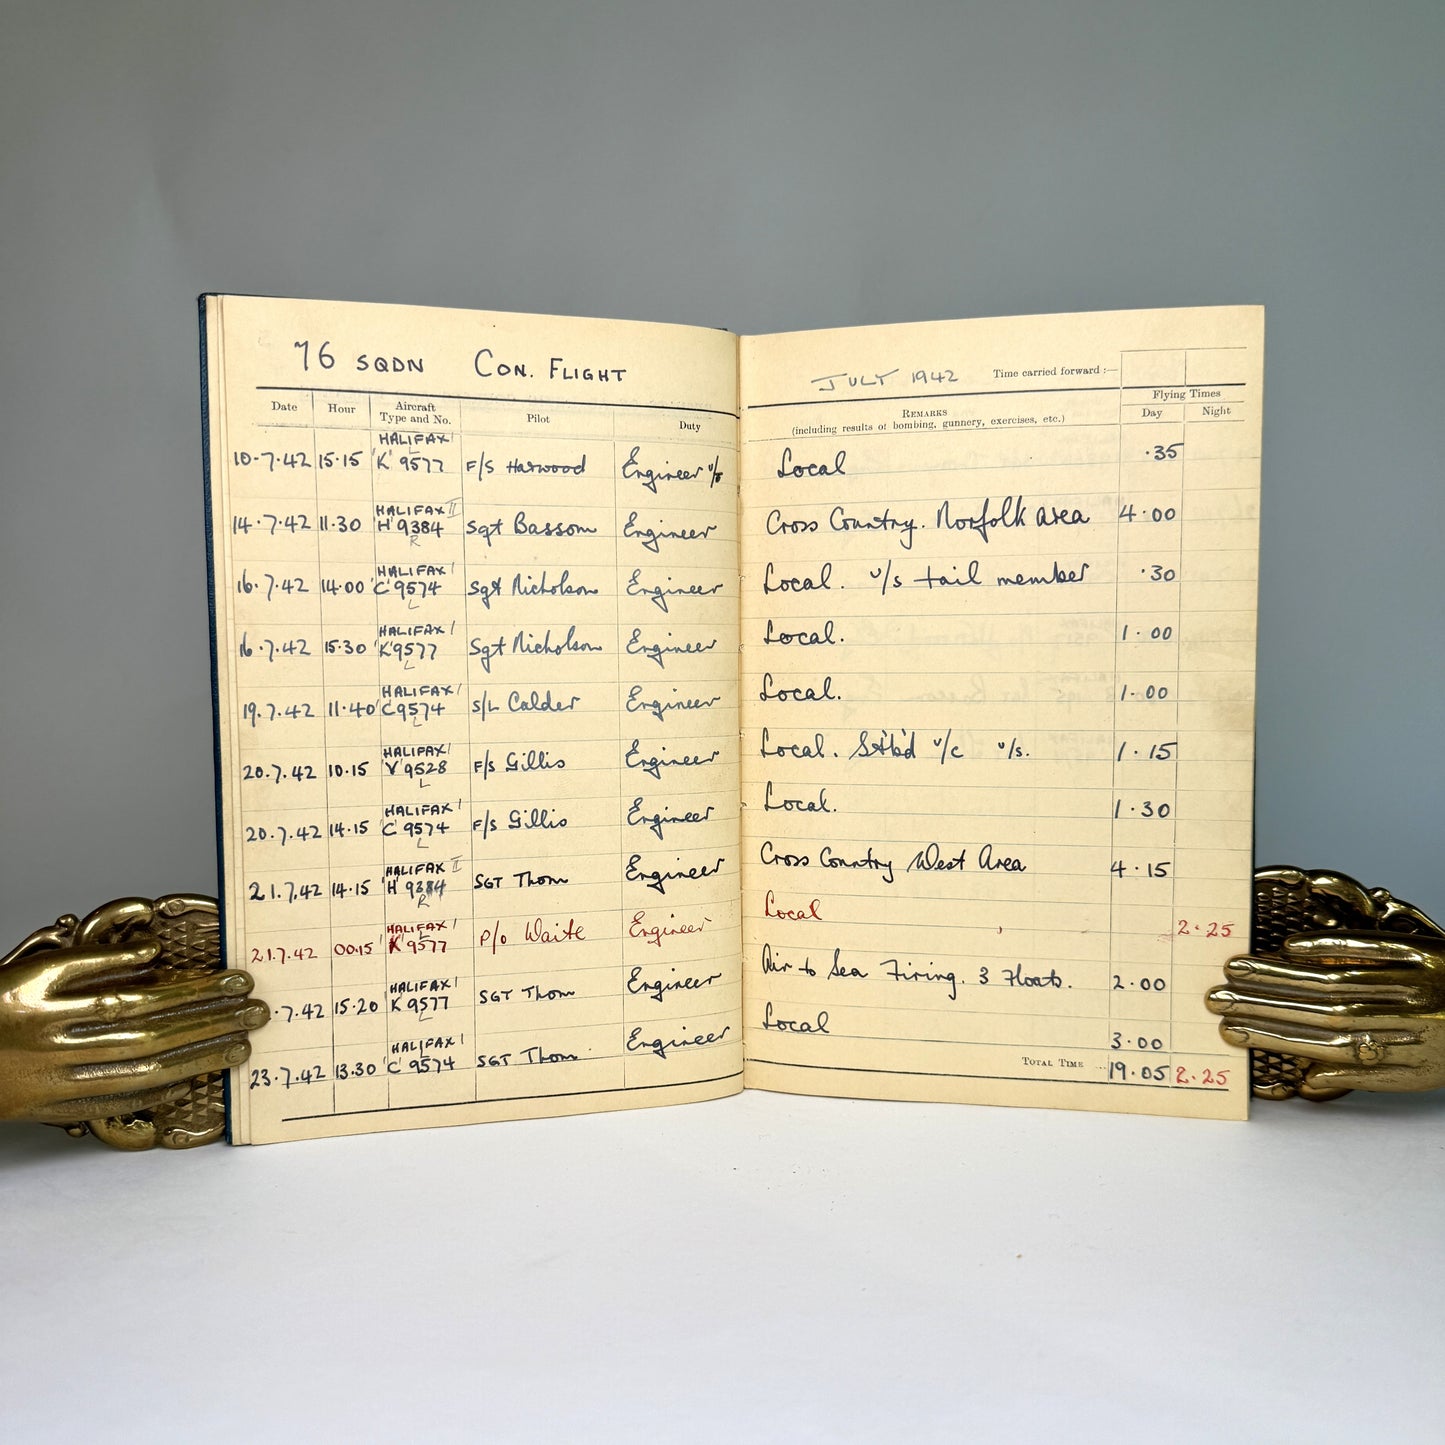 76 SQDN CON. FLIGHT
Date Hour Aircraft Type and No. Pilot Duty
10-7-42 15.15 HALIFAX I 'K' 9577 F/S Harwood Engineer u/t
14.7.42 11.30 HALIFAX II 'H' 9384 R Sgt Bassom Engineer
16.7.42 14.00 HALIFAX I 'C' 9574 L Sgt Nicholson Engineer
16.7.42 15.30 HALIFAX I 'K' 9577 L Sgt Nicholson Engineer
19.7.42 11.40 HALIFAX I 'C' 9574 L S/L Calder Engineer
20.7.42 10.15 HALIFAX I 'V' 9528 L F/S Gillis Engineer
20.7.42 14.15 HALIFAX I 'C' 9574 L F/S Gillis Engineer
21.7.42 14.15 HALIFAX II 'H' 9384 R SGT Thom Engineer
21.7.42 00.15 HALIFAX I 'K' 9577 L P/O Waite Engineer
.7.42 15.20 HALIFAX I 'K' 9577 L SGT Thom Engineer
23.7.42 13.30 HALIFAX I 'C' 9574 L SGT Thom Engineer
JULY 1942 Time carried forward :—
Flying Times
REMARKS
(including results of bombing, gunnery, exercises, etc.)
Day Night
Local .35
Cross Country. Norfolk area 4.00
Local. u/s tail member .30
Local. 1.00
Local. 1.00
Local. St'b'd u/c u/s. 1.15
Local. 1.30
Cross Country West Area 4.15
Local 2.25
Air to Sea Firing. 3 Floats. 2.00
Local 3.00
TOTAL TIME ... 19.05 2.25